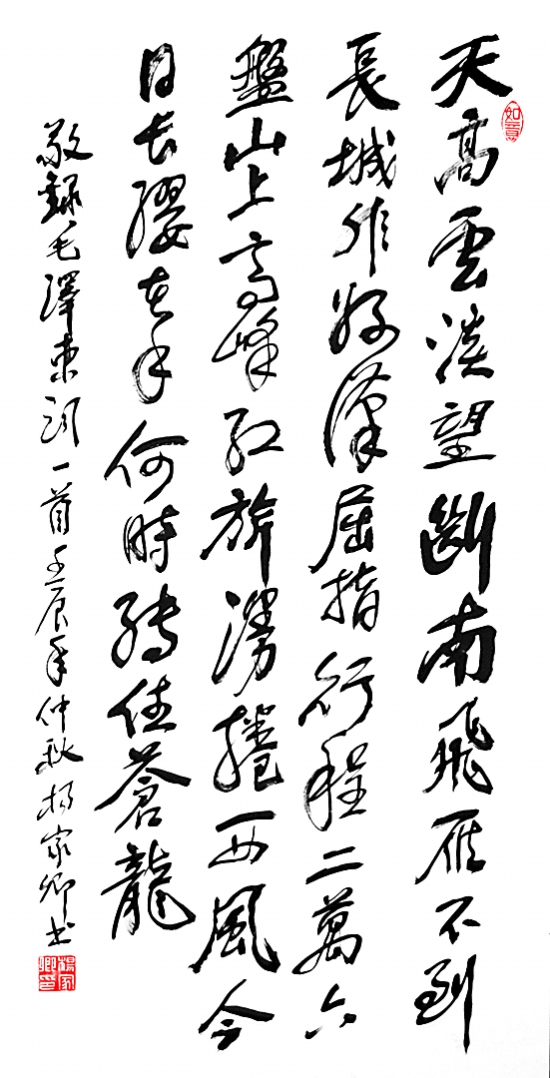 天高雲淡望斷南飛雁不到
長城非好漢屈指行程二萬六
盤山上高峰紅旗漫捲西風今
日長纓在手何時縛住蒼龍
敬錄毛澤東詞一首壬辰年仲秋楊家卿書
如意
楊家卿印